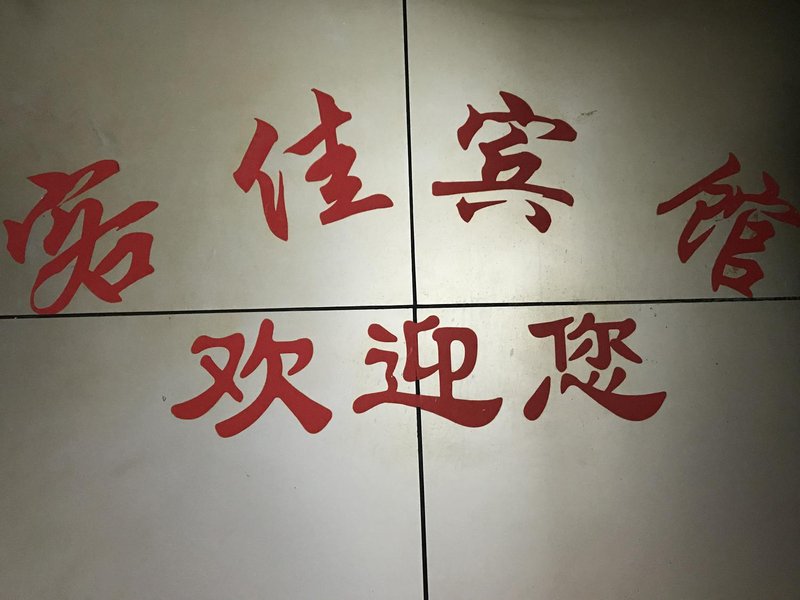 客佳宾馆
欢迎您